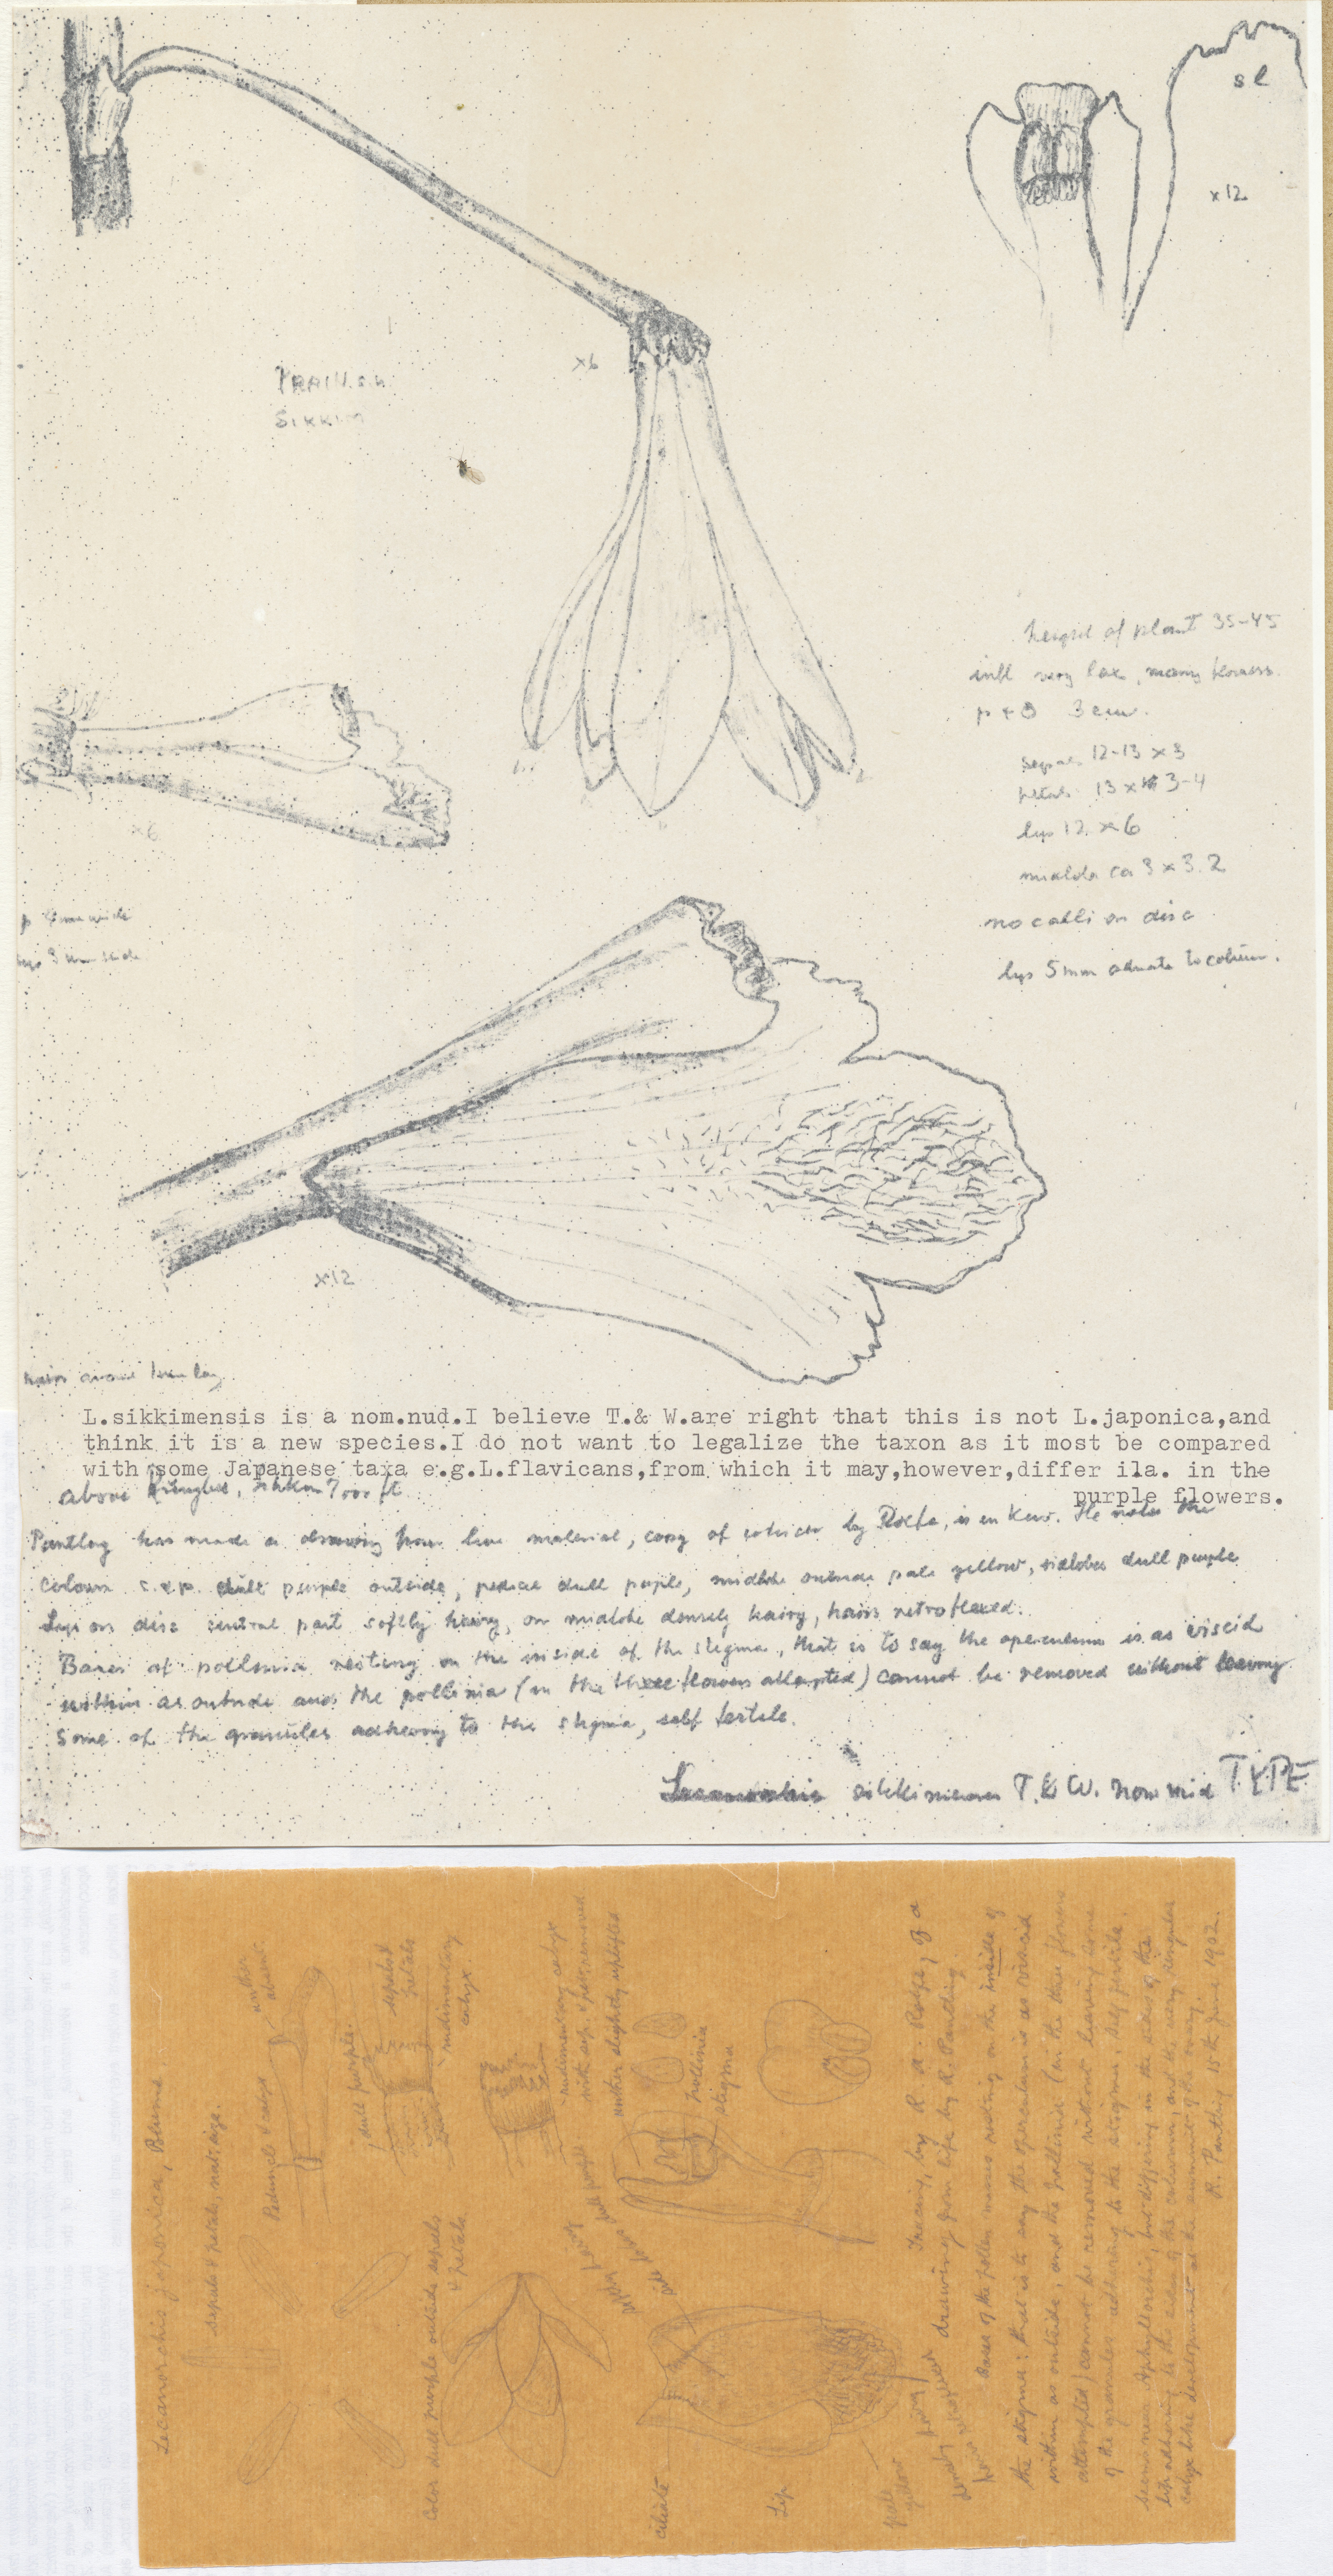 sl
x12
x6
SIKKIM
height of plant 35-45
infl very lax, many flowers
p + o 3 cm.
sepals 12-13 x 3
petals 13 x 3-4
lip 12 x 6
x6
midlobe ca 3 x 3.2
no calli on disc
lip 5 mm adnate to column.
x12
L.sikkimensis is a nom.nud.I believe T.& W.are right that this is not L.japonica,and
think it is a new species.I do not want to legalize the taxon as it most be compared
with some Japanese taxa e.g.L.flavicans,from which it may,however,differ i1a. in the
purple flowers.
above
Pantling has made a drawing from live material, copy of by Rolfe, is in Kew. He notes the
colours s.&p. dull purple outside, pedicel dull purple, midlobe outside pale yellow, sidelobes dull purple
Lip on disc central part softly hairy, on midlobe densely hairy, hairs retroflexed.
Bases of pollinia resting on the inside of the stigma, that is to say the operculum is as viscid
within as outside and the pollinia (in the three flowers attempted) cannot be removed without leaving
some of the granules adhering to the stigma, self fertile.
sikkimensis T. & W. nom nud TYPE
Lecanorchis japonica, Blume.
sepals & petals, nat: size.
Peduncle & ovary
dull purple
sepals & petals
rudimentary calyx.
Color dull purple outside sepals & petals
rudimentary calyx
with sep. & pet. removed.
anther slightly uplifted
Pollinia
stigma
ciliate
Lip
pale yellow
densely hairy
Tracing, by R. A. Rolfe, of a
drawing from life by R. Pantling.
Bases of the pollen masses resting on the inside of
the stigma: that is to say the operculum is as viscid
within as outside, and the pollinia (in the three flowers
attempted) cannot be removed without leaving some
of the granules adhering to the stigma, self fertile.
Seems near Aphyllorchis, but differing in the sides of the
lip adhering to the sides of the column, and the very singular
calyx like development at the summit of the ovary.
R. Pantling 15th June 1902.